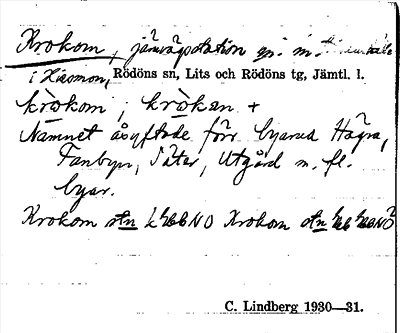 Krokom, järnvägsstation m. m.
i Rödöns sn, Lits och Rödöns tg, Jämtl. l.
kròkom; kròkan +
Namnet åsyftade förr byarna Hägra,
Fanbyn, Sätar, Utgård m. fl.
byar.
Krokom stn NO Krokom stn NO
C. Lindberg 1930—31.